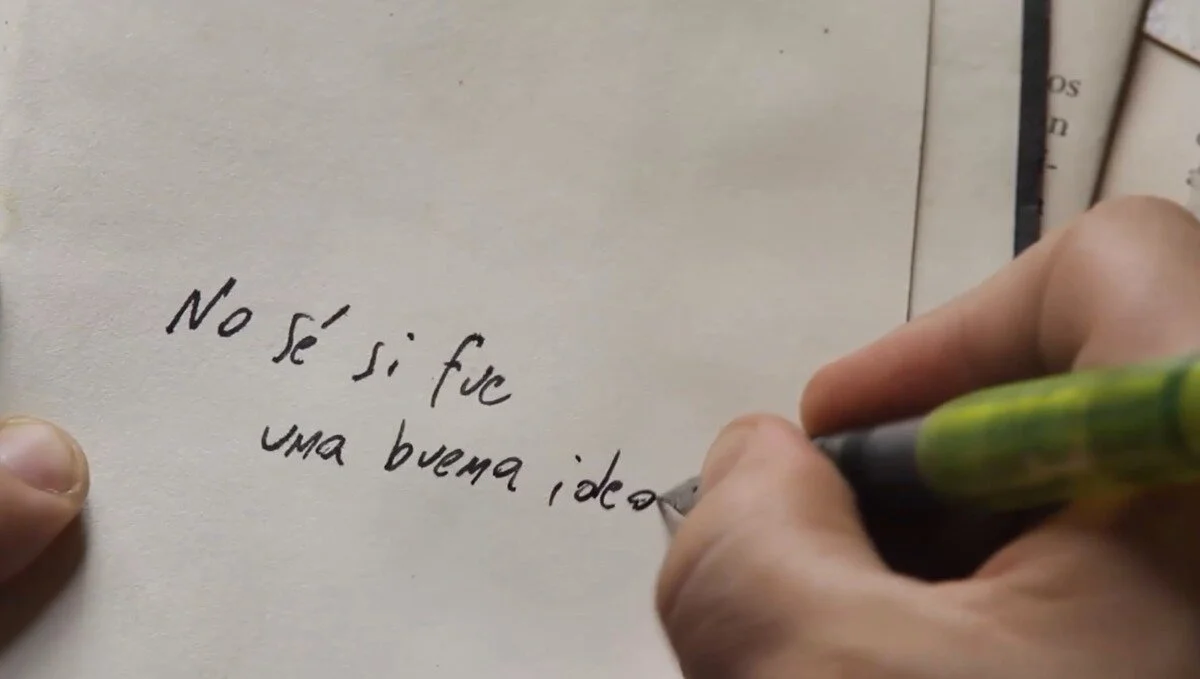 No sé si fue
una buena idea
os
n
-